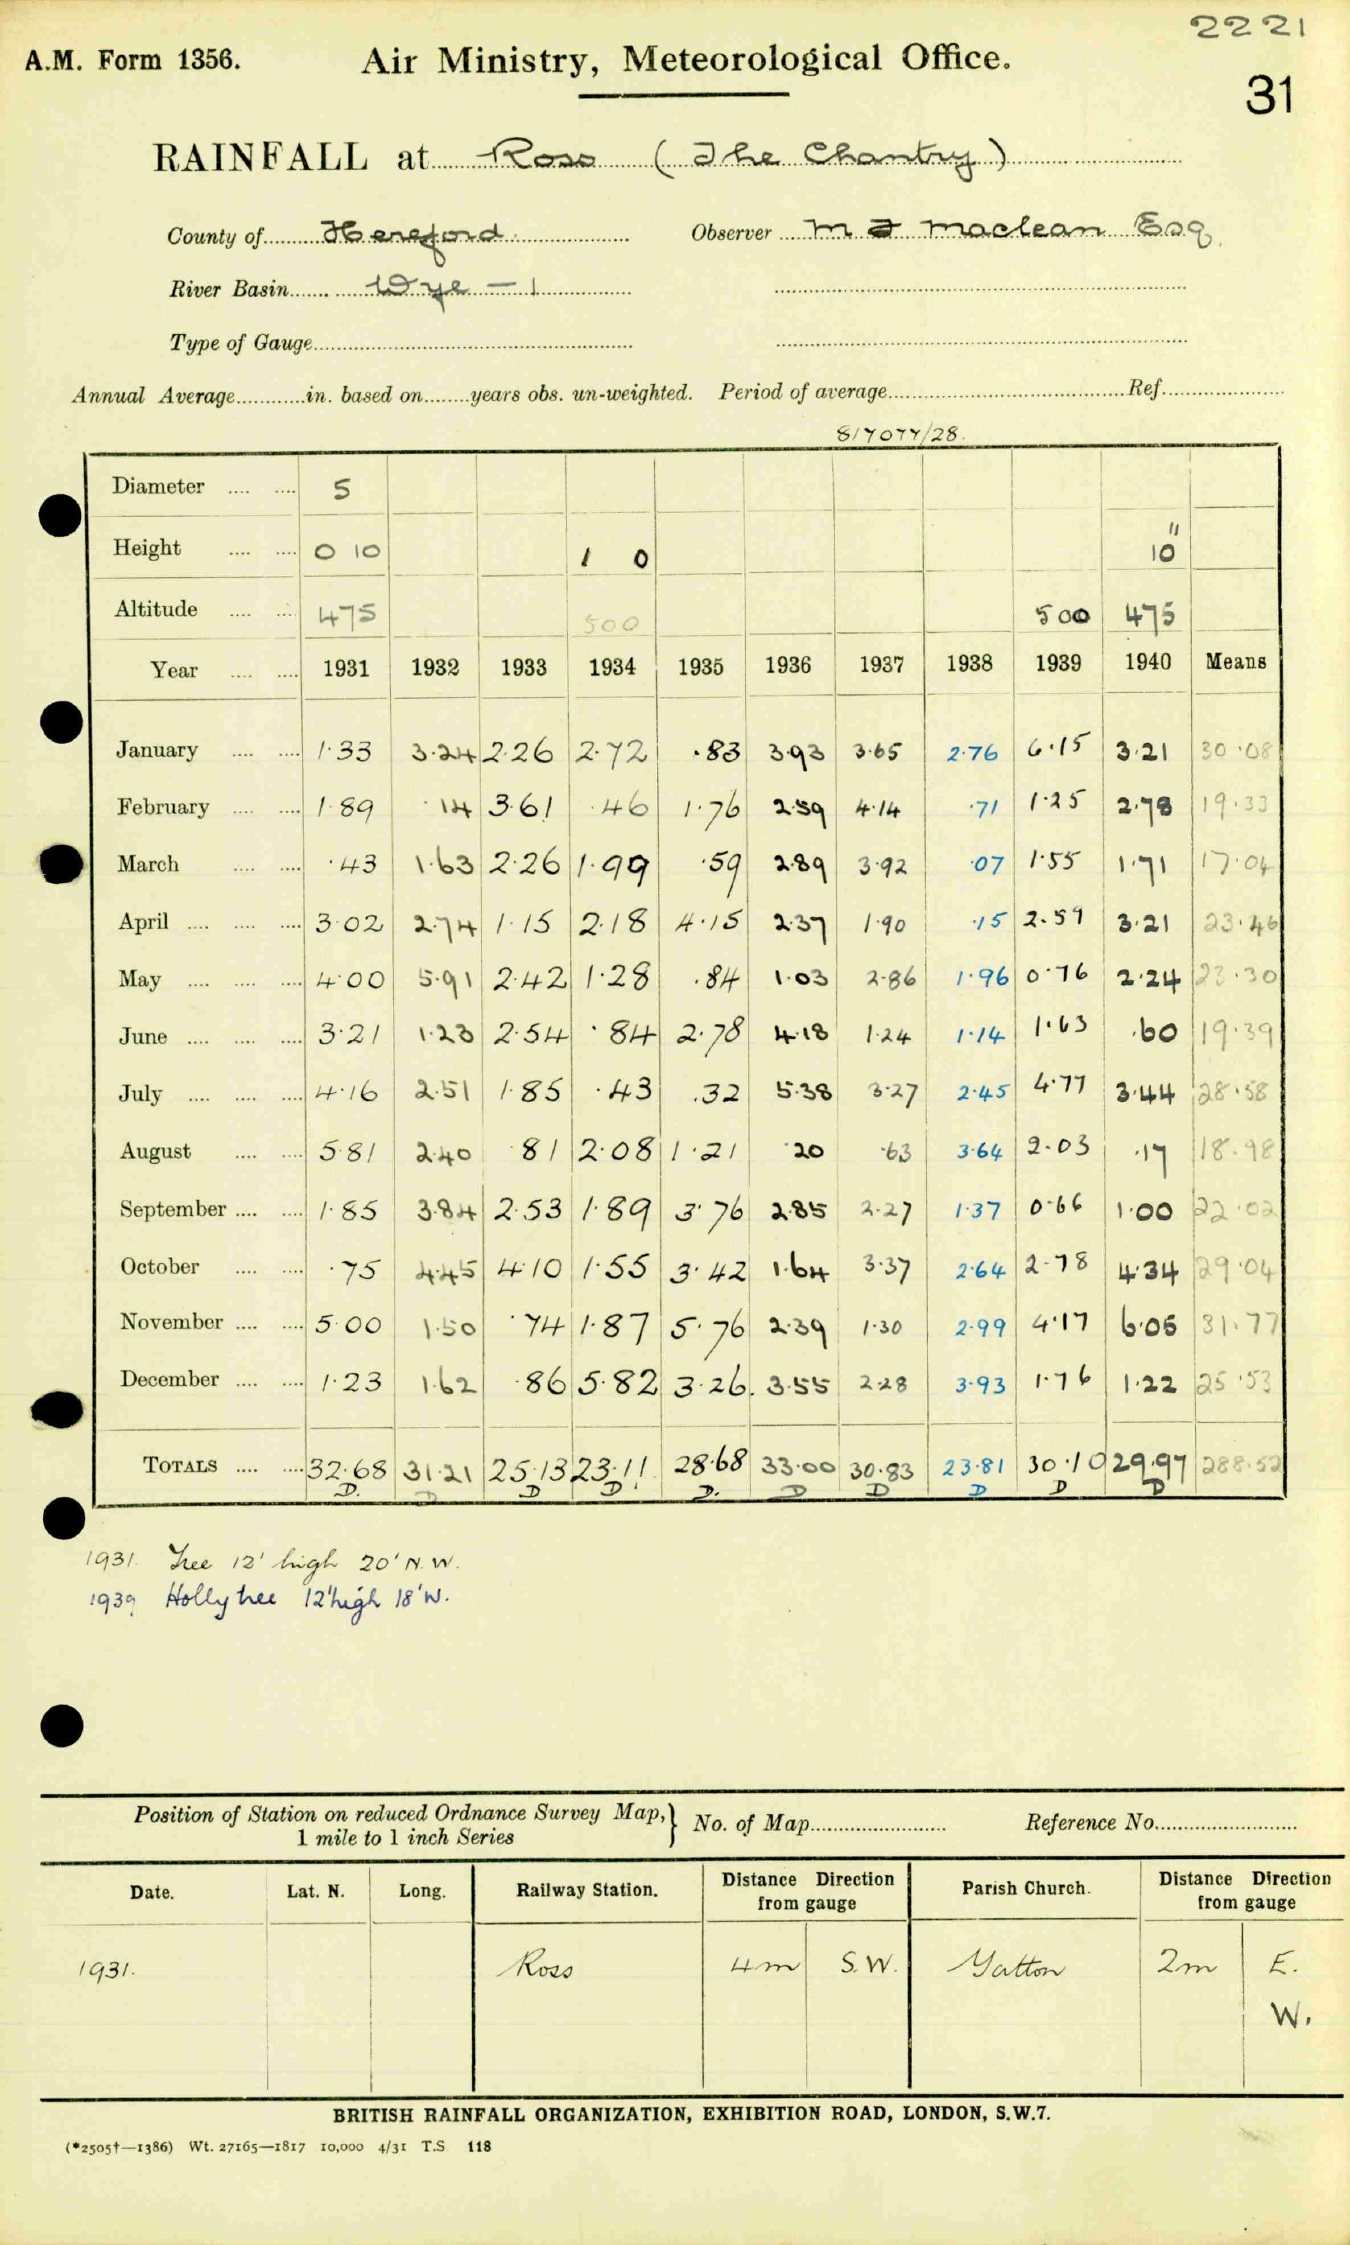 2221
A.M. Form 1356. Air Ministry, Meteorological Office.
31
RAINFALL at Ross (The Chantry)
County of Hereford Observer M J Maclean Esq.
River Basin Wye — 1
Type of Gauge
Annual Average in. based on years obs. un-weighted. Period of average Ref.
817077/28.
Diameter 5
Height 0 10 1 0 10"
Altitude 475 500 500 475
Year 1931 1932 1933 1934 1935 1936 1937 1938 1939 1940 Means
January 1·33 3·24 2·26 2·72 ·83 3·93 3·65 2·76 6·15 3·21 30·08
February 1·89 ·14 3·61 ·46 1·76 2·59 4·14 ·71 1·25 2·78 19·33
March ·43 1·63 2·26 1·99 ·59 2·89 3·92 ·07 1·55 1·71 17·04
April 3·02 2·74 1·15 2·18 4·15 2·37 1·90 ·15 2·59 3·21 23·46
May 4·00 5·91 2·42 1·28 ·84 1·03 2·86 1·96 0·76 2·24 23·30
June 3·21 1·23 2·54 ·84 2·78 4·18 1·24 1·14 1·63 ·60 19·39
July 4·16 2·51 1·85 ·43 ·32 5·38 3·27 2·45 4·77 3·44 28·58
August 5·81 2·40 ·81 2·08 1·21 ·20 ·63 3·64 2·03 ·17 18·98
September 1·85 3·84 2·53 1·89 3·76 2·85 2·27 1·37 0·66 1·00 22·02
October ·75 4·45 4·10 1·55 3·42 1·64 3·37 2·64 2·78 4·34 29·04
November 5·00 1·50 ·74 1·87 5·76 2·39 1·30 2·99 4·17 6·05 31·77
December 1·23 1·62 ·86 5·82 3·26 3·55 2·28 3·93 1·76 1·22 25·53
TOTALS 32·68 31·21 25·13 23·11 28·68 33·00 30·83 23·81 30·10 29·97 288·52
D. D D D D. D D D D D
1931. Tree 12' high 20' N.W.
1939 Holly tree 12' high 18' W.
Position of Station on reduced Ordnance Survey Map,} No. of Map Reference No.
1 mile to 1 inch Series
Date. Lat. N. Long. Railway Station. Distance Direction from gauge Parish Church. Distance Direction from gauge
1931. Ross 4m S.W. Yatton 2m E.
W.
BRITISH RAINFALL ORGANIZATION, EXHIBITION ROAD, LONDON, S.W.7.
(*2505†—1386) Wt. 27165—1817 10,000 4/31 T.S 118